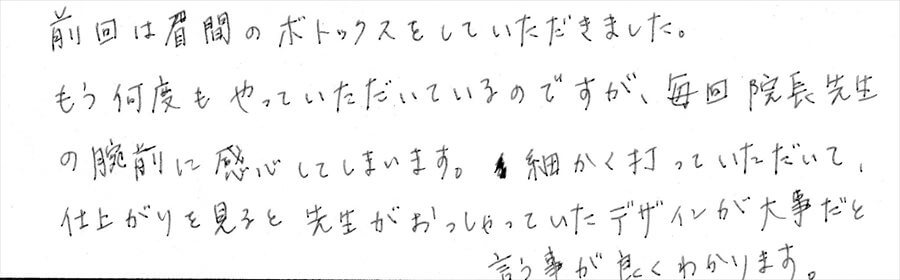 前回は眉間のボトックスをしていただきました。
もう何度もやっていただいているのですが、毎回院長先生
の腕前に感心してしまいます。細かく打っていただいて、
仕上がりを見ると先生がおっしゃっていたデザインが大事だと
言う事が良くわかります。